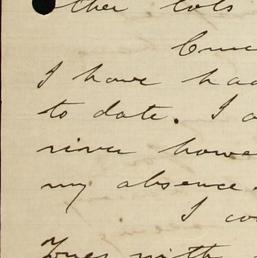 other lots
I have had
to date. I
river howe
my absence.
I co
Yours with